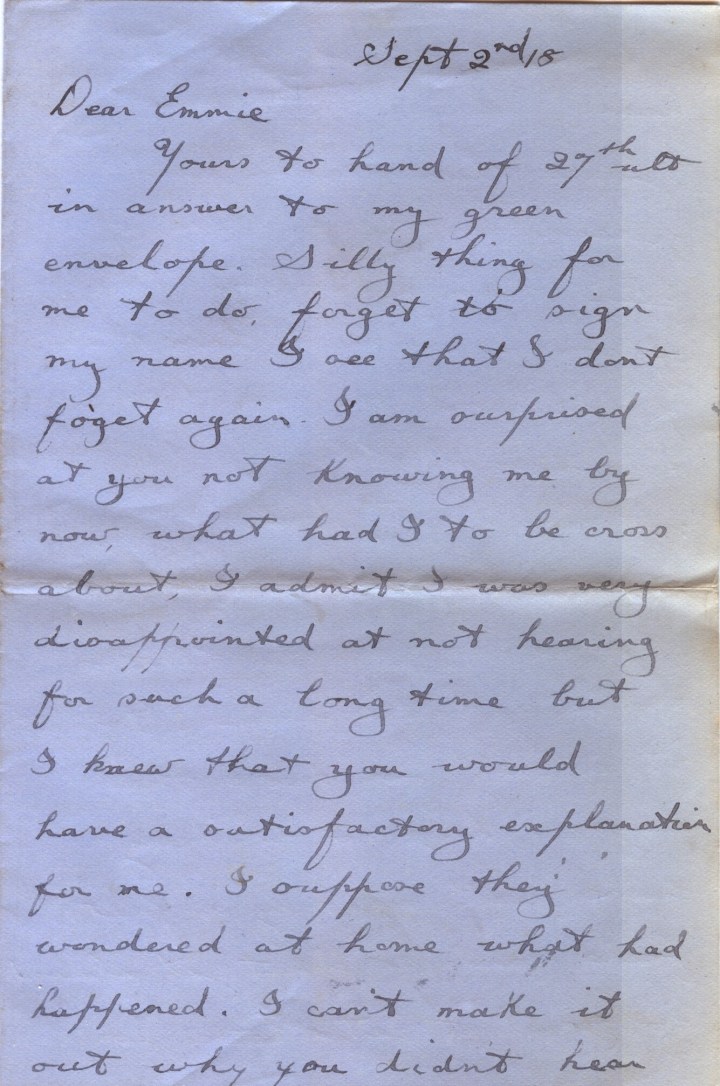 Sept 2nd/18
Dear Emmie
Yours to hand of 27th ult
in answer to my green
envelope. Silly thing for
me to do, forget to sign
my name I see that I dont
foget again. I am surprised
at you not knowing me by
now, what had I to be cross
about, I admit I was very
disappointed at not hearing
for such a long time but
I knew that you would
have a satisfactory explanation
for me. I suppose they
wondered at home what had
happened. I can't make it
out why you didn't hear